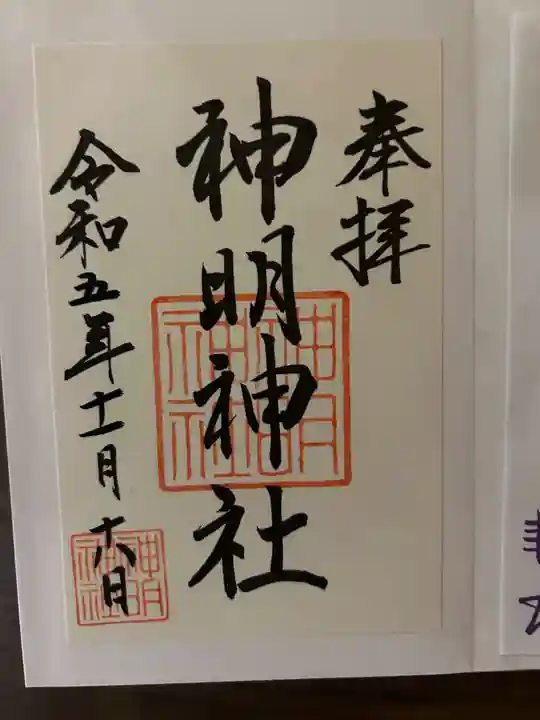 奉拝
神明神社
神明
神社
令和五年十一月十八日
神明
神社